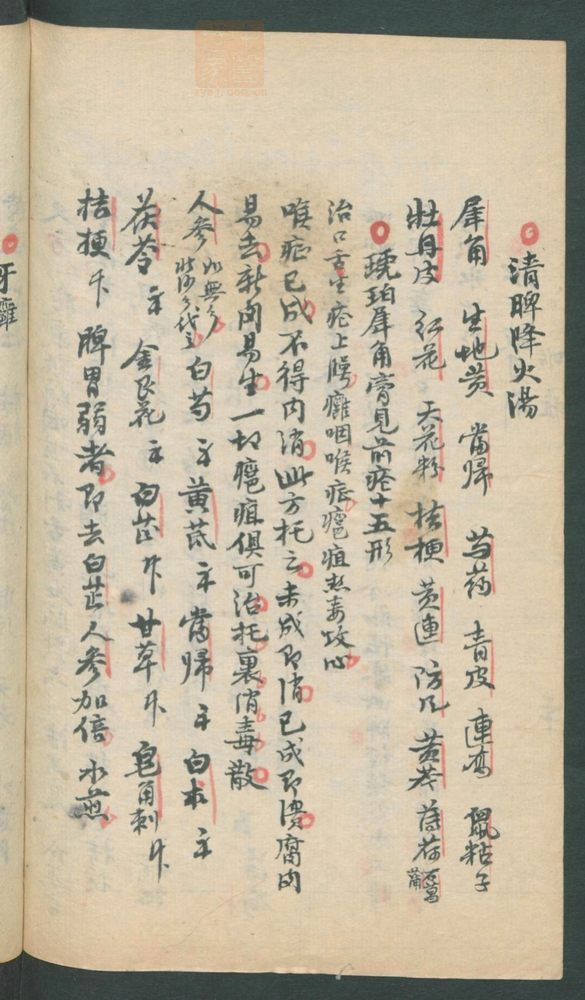 清脾降火湯
犀角 生地黄 當歸 芍药 青皮 連翹 鼠粘子
牡丹皮 红花 天花粉 桔梗 黄連 防风 黄芩 薄荷
琥珀犀角膏見前瘡十五形
治口舌生瘡上腭癰咽喉症瘡疽热毒攻心
喉症已成不得内消此方托之未成即消已成即潰腐肉
易去新肉易生一切瘡疽俱可治托裏消毒散
人參 如無 沙參代之 白芍 黄芪 當歸 白朮
茯苓 金艮花 白芷 甘草 皂角刺
桔梗 脾胃弱者即去白芷人參加倍水煎
牙癰